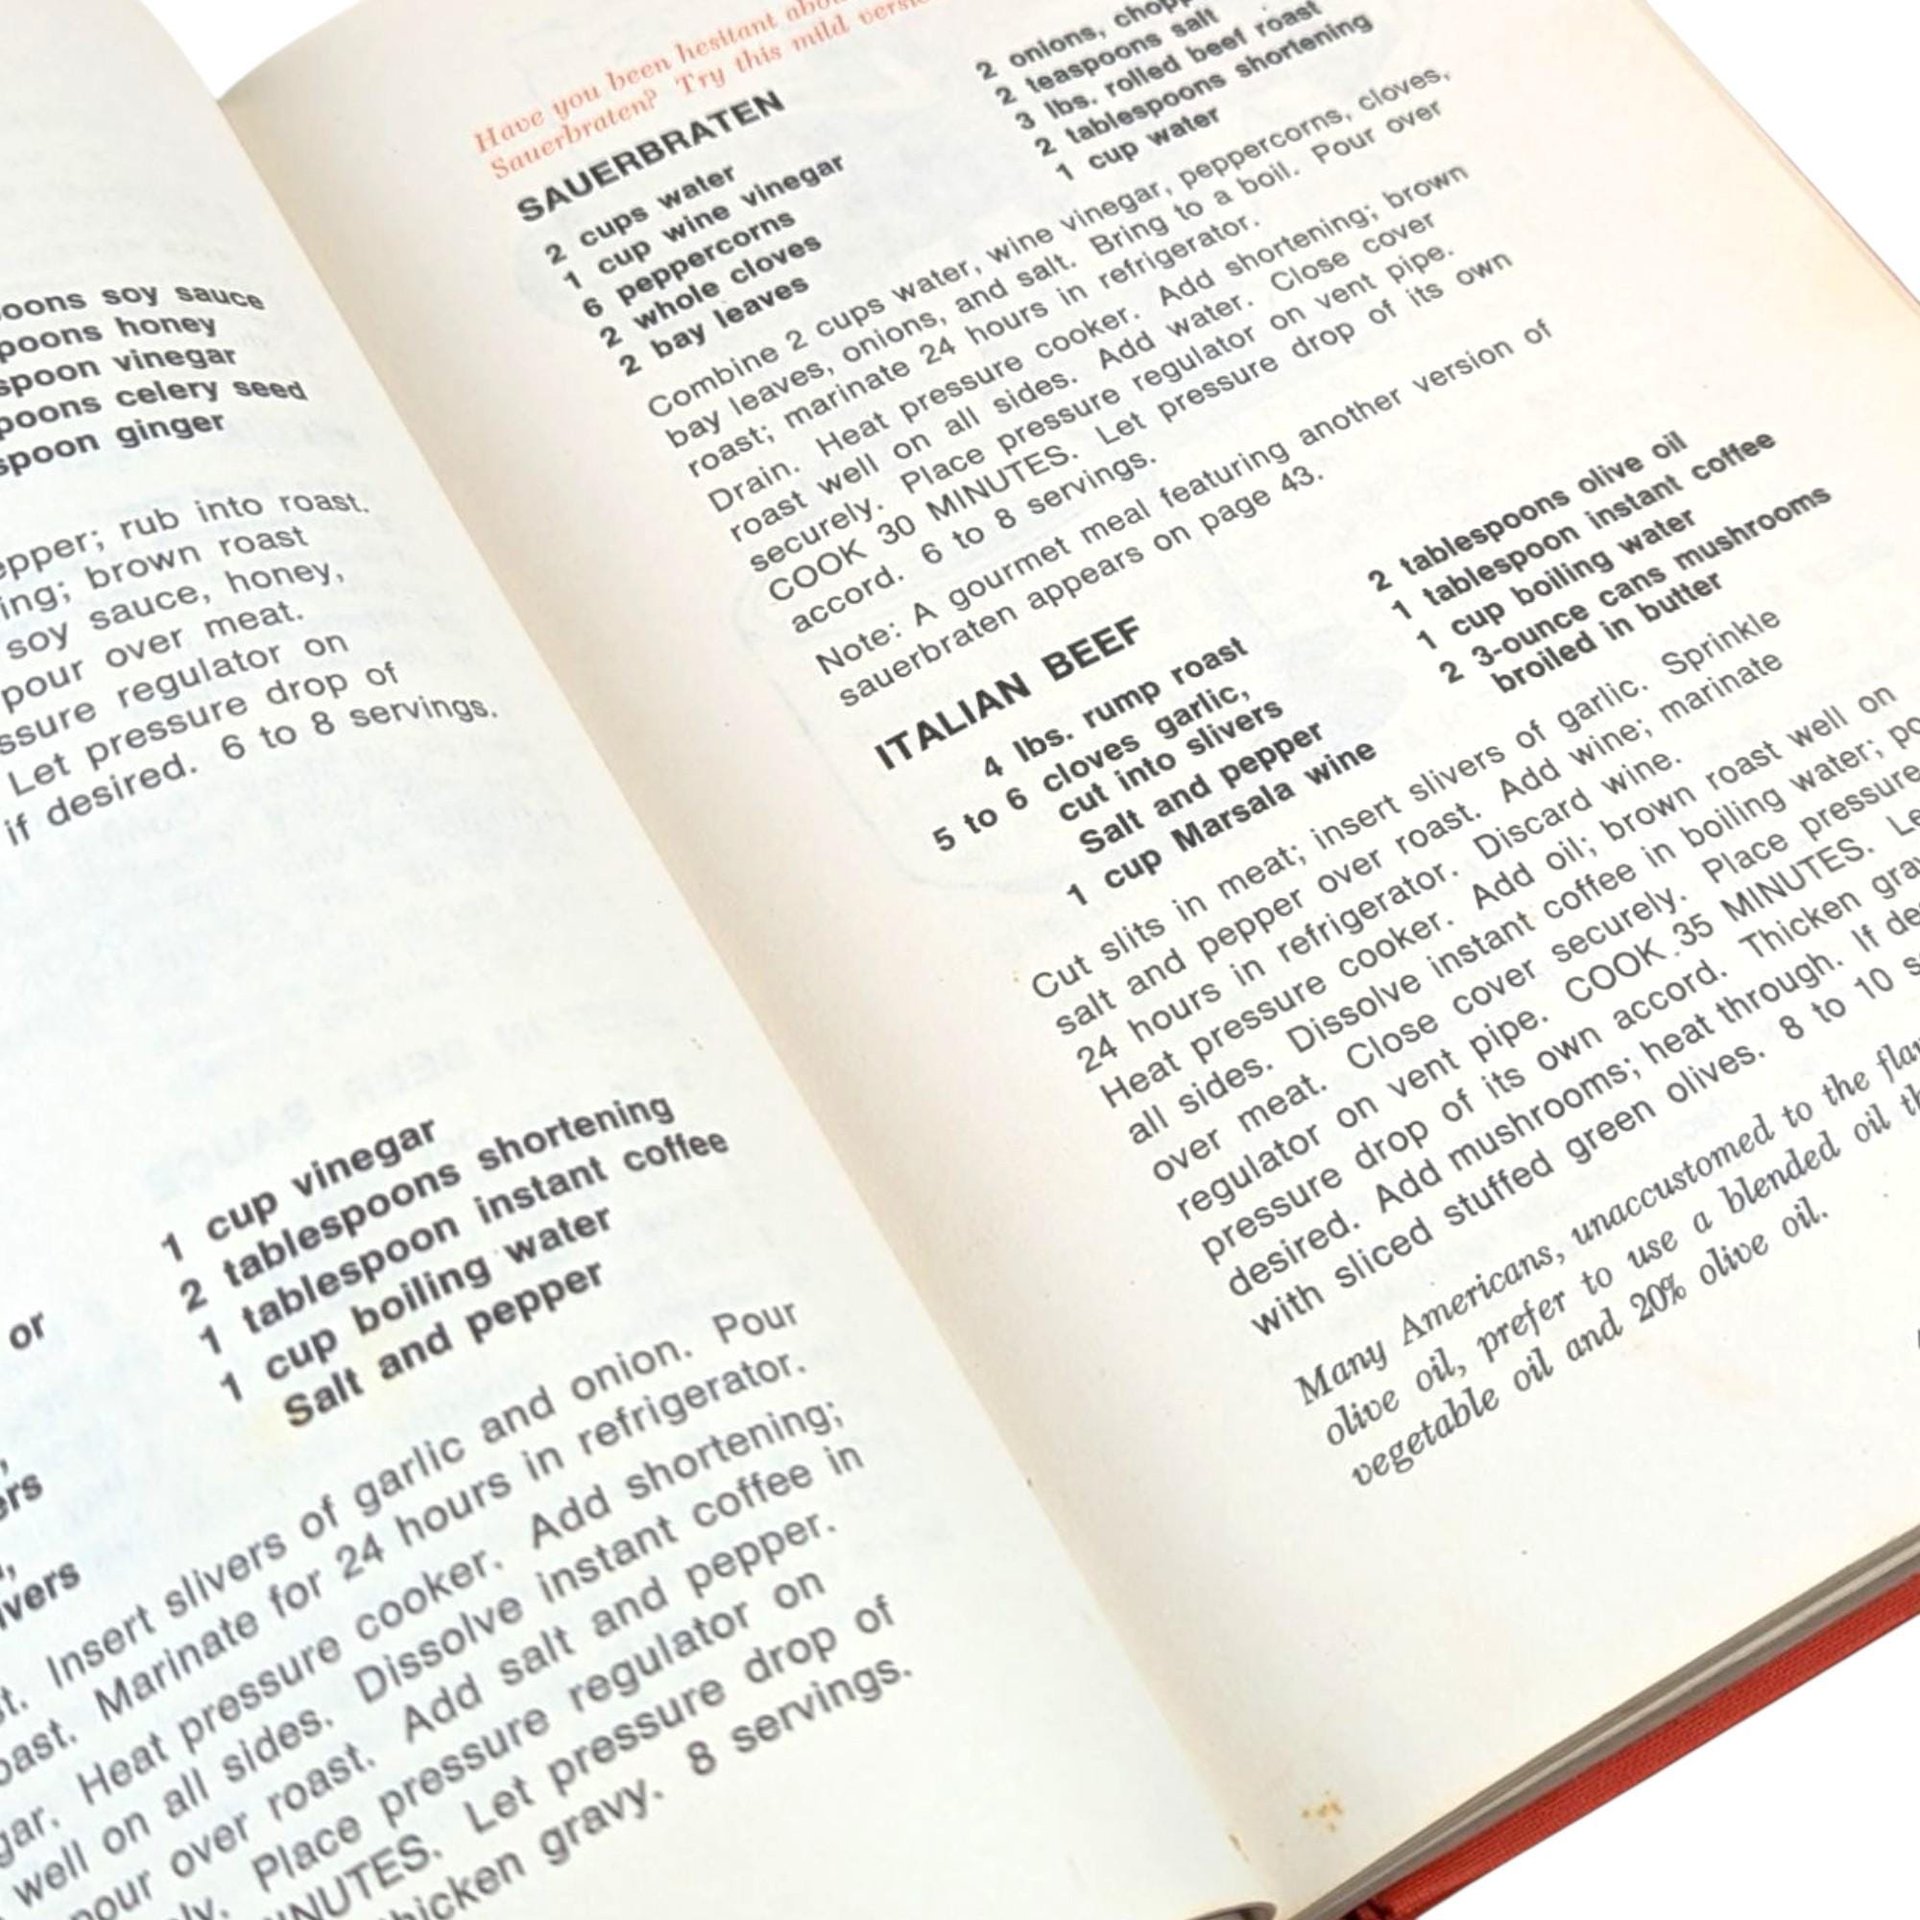 soy sauce
honey
vinegar
celery seed
ginger
rub into roast.
brown roast
soy sauce, honey,
pour over meat.
regulator on
Let pressure drop of
if desired. 6 to 8 servings.
or
1 cup vinegar
2 tablespoons shortening
1 tablespoon instant coffee
1 cup boiling water
Salt and pepper
Insert slivers of garlic and onion. Pour
Marinate for 24 hours in refrigerator.
Heat pressure cooker. Add shortening;
well on all sides. Dissolve instant coffee in
pour over roast. Add salt and pepper.
Place pressure regulator on
Let pressure drop of
gravy. 8 servings.
Have you been hesitant
Sauerbraten? Try this mild
SAUERBRATEN
2 cups water
1 cup wine vinegar
6 peppercorns
2 whole cloves
2 bay leaves
2 onions,
2 teaspoons salt
3 lbs. rolled beef roast
2 tablespoons shortening
1 cup water
Combine 2 cups water, wine vinegar, peppercorns, cloves,
bay leaves, onions, and salt. Bring to a boil. Pour over
roast; marinate 24 hours in refrigerator.
Drain. Heat pressure cooker. Add shortening; brown
roast well on all sides. Add water. Close cover
securely. Place pressure regulator on vent pipe.
COOK 30 MINUTES. Let pressure drop of its own
accord. 6 to 8 servings.
Note: A gourmet meal featuring another version of
sauerbraten appears on page 43.
ITALIAN BEEF
4 lbs. rump roast
5 to 6 cloves garlic,
cut into slivers
Salt and pepper
1 cup Marsala wine
2 tablespoons olive oil
1 tablespoon instant coffee
1 cup boiling water
2 3-ounce cans mushrooms
broiled in butter
Cut slits in meat; insert slivers of garlic. Sprinkle
salt and pepper over roast. Add wine; marinate
24 hours in refrigerator. Discard wine.
Heat pressure cooker. Add oil; brown roast well on
all sides. Dissolve instant coffee in boiling water;
over meat. Close cover securely. Place pressure
regulator on vent pipe. COOK 35 MINUTES.
pressure drop of its own accord. Thicken
desired. Add mushrooms; heat through. If
with sliced stuffed green olives. 8 to 10
Many Americans, unaccustomed to the
olive oil, prefer to use a blended oil
vegetable oil and 20% olive oil.